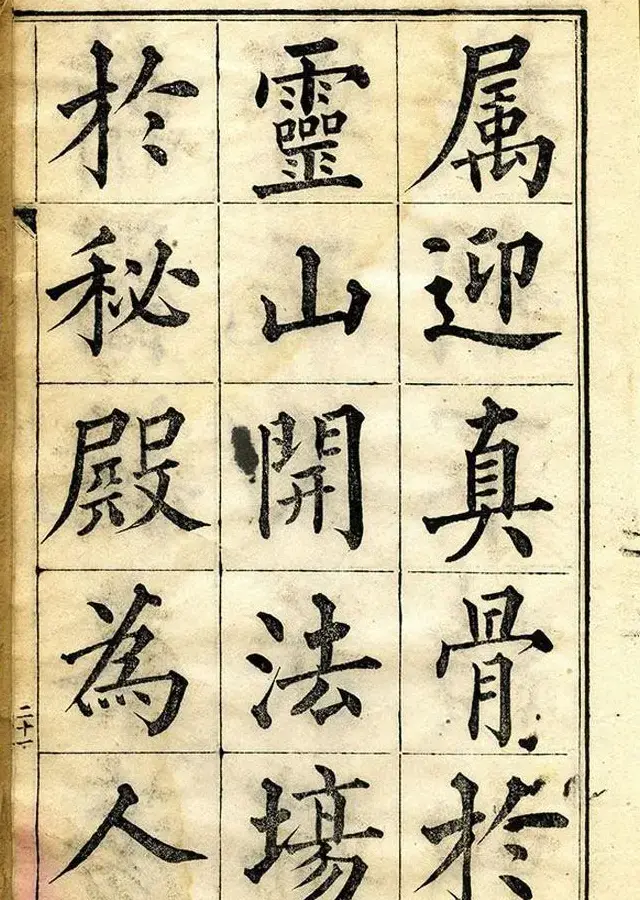 属迎真骨於
靈山開法塲
於秘殿為人
二十一